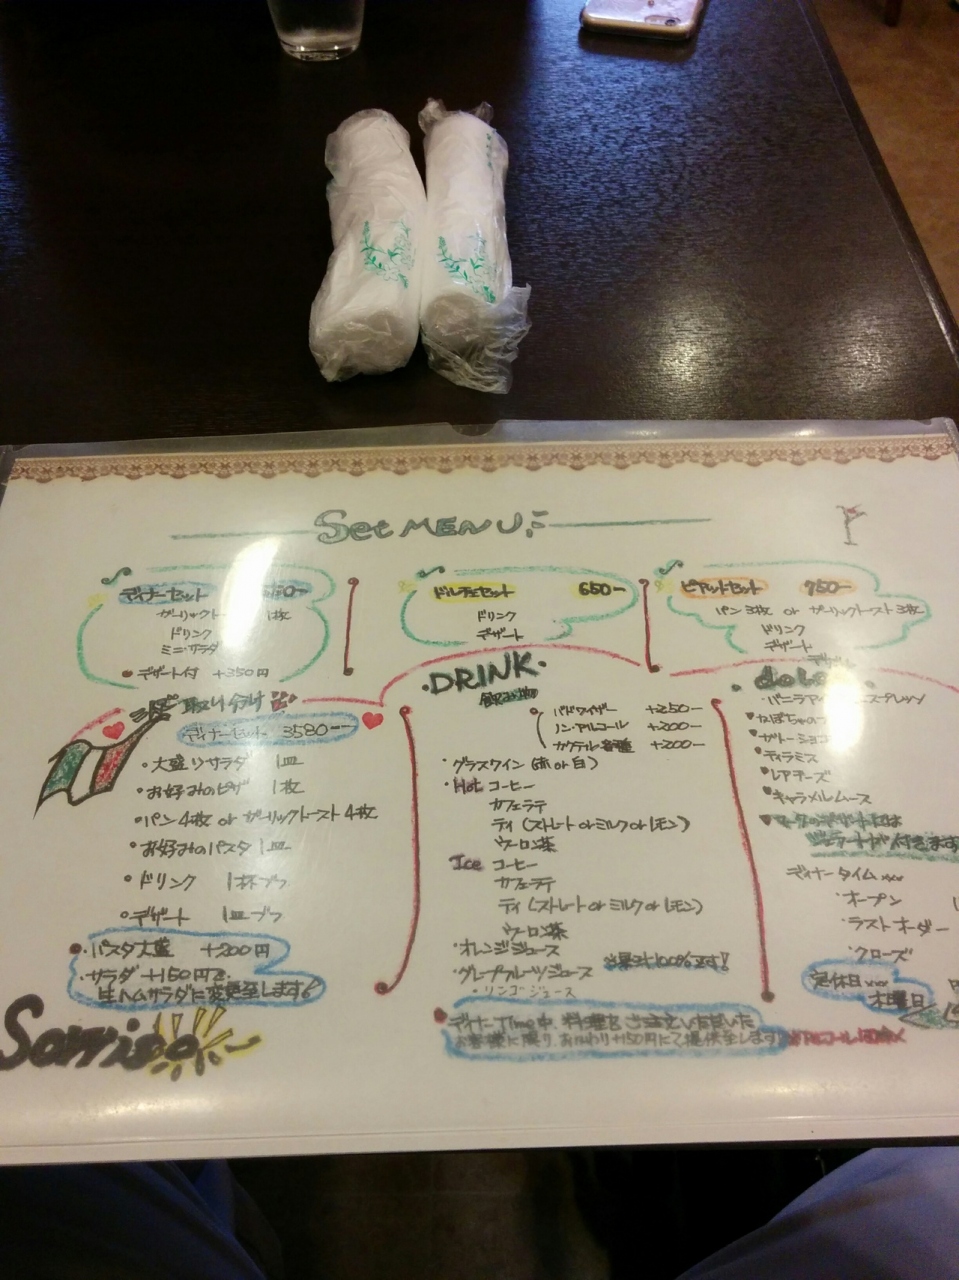 Set MENU
ディナーセット
ガーリックトースト 1枚
ドリンク
ミニ・サラダ
デザート付 +350円
ドルチェセット 650-
ドリンク
デザート
ピアットセット 950-
パン3枚 or ガーリックトースト3枚
ドリンク
デザート
取り分け
ディナーセット 3580-
・大盛りサラダ 1皿
・お好みのピザ 1枚
・パン4枚 or ガーリックトースト4枚
・お好みのパスタ 1皿
・ドリンク 1杯ずつ
・デザート 1皿ずつ
・パスタ大盛 +200円
・サラダ +150円で
生ハムサラダに変更至します!
・DRINK・
飲み物
バドワイザー +250-
ノンアルコール +200-
カクテル各種 +200-
・グラスワイン (赤or白)
・Hot コーヒー
カフェラテ
ティ (ストレート or ミルク or レモン)
ウーロン茶
Ice コーヒー
カフェラテ
ティ (ストレート or ミルク or レモン)
ウーロン茶
・オレンジジュース
・グレープフルーツジュース
・リンゴジュース
果汁100%です!
ディナーTime中、料理をご注文いただいた
お客様に限り、おかわり+150円にて提供至します
・バニラアイス
ガトーショコラ
ティラミス
レアチーズ
キャラメルムース
ジェラートが付きます
ディナータイム
・オープン
・ラストオーダー
・クローズ
定休日
木曜日